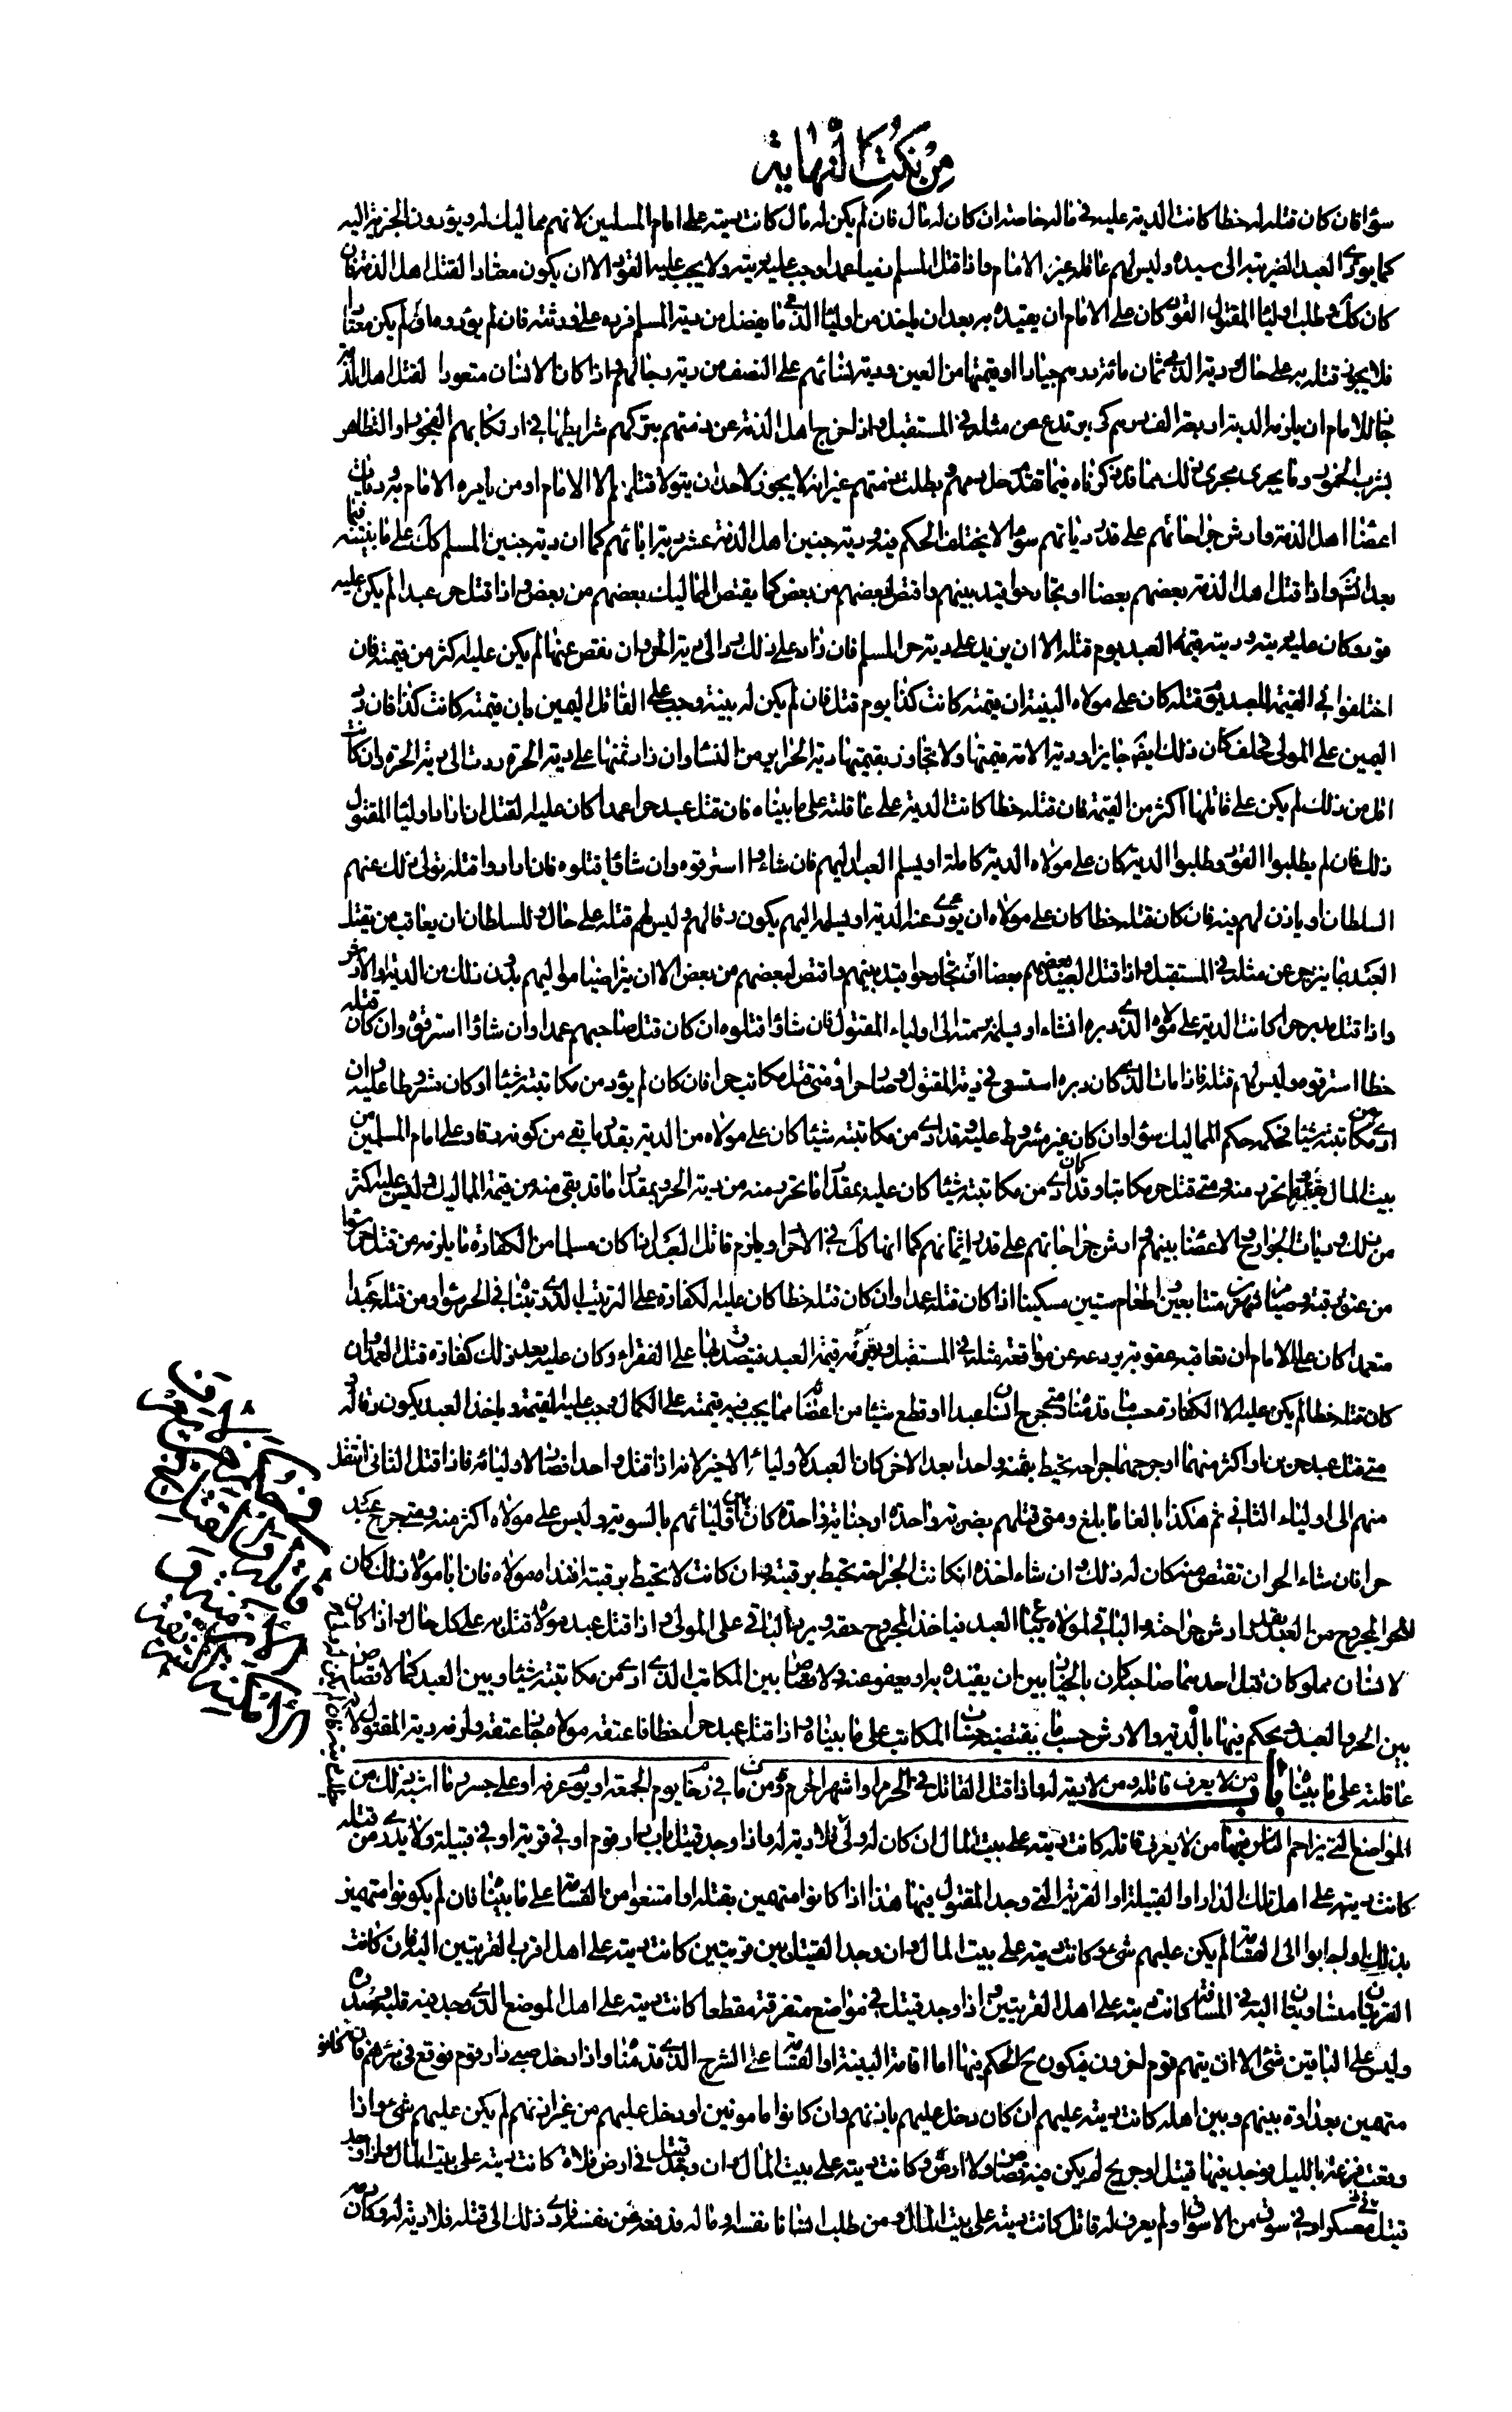 من نكت النهاية
سواء فان كان قتله له خطا كانت الدية عليه في ماله خاصة ان كان له مال فان لم يكن له مال كانت ديته على امام المسلمين لانهم مماليك له ويؤدون الجزية اليه
كما يؤدي العبد الضريبة الى سيده وليس لهم عاقلة غير الامام واذا قتل المسلم ذميا عمدا وجب عليه ديته ولا يجب عليه القود الا ان يكون معتادا لقتل اهل الذمة فان
كان كك وطلب اولياء المقتول القود كان على الامام ان يقيده به بعد ان ياخذ من اولياء الذمي ما يفضل من دية المسلم فيرده على ورثته فان لم يردوه او لم يكن معتادا
فلا يجوز قتله به على حال ودية الذمي ثمان مائة درهم جيادا او قيمتها من العين ودية نسائهم على النصف من دية رجالهم واذا كان الانسان متعودا لقتل اهل الذمة
جاز للامام ان يلزمه الدية اربعة الف درهم كي يرتدع عن مثله في المستقبل واذا خرج اهل الذمة عن ذمتهم بتركهم شرايطها في ارتكابهم الفجور او التظاهر
بشرب الخمور وما يجري مجرى ذلك مما قد ذكرناه فيما تقدم حل دمهم وبطلت ذمتهم غير انه لا يجوز لاحد ان يتولا قتلهم الا الامام او من يامره الامام به وديات
اعضاء اهل الذمة وارش جراحاتهم على قدر دياتهم سواء لا يختلف الحكم فيه ودية جنين اهل الذمة عشر دية ابائهم كما ان دية جنين المسلم كك على ما نبينه فيما
بعد انشا واذا قتل اهل الذمة بعضهم بعضا او تجارحوا قيد بينهم واقتص لبعضهم من بعض كما يقتص المماليك بعضهم من بعض واذا قتل حر عبدا لم يكن عليه
قود وكان عليه ديته وديته قيمة العبد يوم قتله الا ان يزيد على دية حر المسلم فان زاد على ذلك رد الى دية الحر وان نقص عنها لم يكن عليه اكثر من قيمته فان
اختلفوا في القيمة العبد يوم قتله كان على مولاه البينة ان قيمته كانت كذا يوم قتل فان لم يكن له بينة وجب على القاتل اليمين بان قيمته كانت كذا فان رد
اليمين على المولى فحلف كان ذلك ايضا جايزا ودية الامة قيمتها ولا يتجاوز بقيمتها دية الحراير من النساء وان زاد ثمنها على دية الحرة ردت الى دية الحرة وان كانت
اقل من ذلك لم يكن على قاتلها اكثر من القيمة فان قتله خطا كانت الدية على عاقلته على ما بيناه فان قتل عبد حرا عمدا كان عليه القتل ان اراد اولياء المقتول
ذلك فان لم يطلبوا القود وطلبوا الدية كان على مولاه الدية كاملة او يسلم العبد اليهم فان شاؤا استرقوه وان شاؤا قتلوه فان ارادوا قتله تولى ذلك عنهم
السلطان او ياذن لهم فيه فان كان قتله خطا كان على مولاه ان يؤدي عنه الدية او يسلمه اليهم يكون رقا لهم وليس لهم قتله على حال وللسلطان ان يعاقب من يقتل
العبد بما ينزجر عن مثله في المستقبل واذا قتل العبيد بعضهم بعضا او تجارحوا قيد بينهم واقتص لبعضهم من بعض الا ان يتراضيا مواليهم بدون ذلك من الدية والارش
واذا قتل مدبر حرا كانت الدية على مولاه الذي دبره انشاء او يسلمه برمته الى اولياء المقتول فان شاؤا قتلوه ان كان قتل صاحبهم عمدا وان شاؤا استرقوه وان كان قتله
خطا استرقوه وليس لهم قتله فاذا مات الذي كان دبره استسعى في دية المقتول وصار حرا ومتى قتل مكاتب حرا فان كان لم يؤد من مكاتبته شيئا او كان مشروطا عليه وان
ادى من مكاتبته شيئا فحكمه حكم المماليك سواء وان كان غير مشروط عليه وقد ادى من مكاتبته شيئا كان على مولاه من الدية بقدر ما بقي من كونه رقا وعلى امام المسلمين من
بيت المال بقدر ما تحرر منه ومتى قتل حر مكاتبا وكان قد ادى من مكاتبته شيئا كان عليه بمقدار ما تحرر منه من دية الحر وبمقدار ما قد بقي منه من قيمة المماليك وليس عليه اكثر
من ذلك وديات الجوارح والاعضاء بينهم وارش جراحاتهم على قدر اثمانهم كما انها كك في الاحرار ويلزم قاتل العبد اذا كان مسلما من الكفارة ما يلزمه من قتل حر سواء
من عتق رقبة وصيام شهرين متتابعين واطعام ستين مسكينا اذا كان قتله عمدا وان كان قتله خطا كان عليه الكفارة على الترتيب الذي رتبناه في الحر سواء ومن قتل عبدا
متعمدا كان على الامام ان يعاقبه عقوبة يردعه عن مواقعة مثله في المستقبل ويغرمه قيمة العبد فيتصدق بها على الفقراء وكان عليه بعد ذلك كفارة قتل العمد وان
كان قتله خطا لم يكن عليه الا الكفارة حسب ما قدمناه ومتى جرح انسان عبدا او قطع شيئا من اعضائه مما يجب فيه قيمته على الكمال وجب عليه القيمة وياخذ العبد يكون رقا له و
متى قتل عبد حرين او اكثر منهما او جرحهما جراحة يحيط بثمنه واحدا بعد الاخر كان العبد لاولياء الاخير لانه اذا قتل واحدا فصار لاوليائه فاذا قتل الثاني انتقل
منهم الى اولياء الثاني ثم هكذا بالغا ما بلغ ومتى قتلهم بضربة واحدة او جناية واحدة كان بين اوليائهم بالسوية وليس على مولاه اكثر منه ومتى جرح عبد
حرا فان شاء الحر ان تقتص منه كان له ذلك وان شاء اخذه ان كانت الجراحة تحيط برقبته وان كانت لا تحيط برقبته افتداه مولاه فان ابا مولاه ذلك كان
للحر المجروح من العبد بقدر ارش جراحته والباقي لمولاه يباع العبد فياخذ المجروح حقه ويرد الباقي على المولى واذا قتل عبد مولاه قتل به على كل حال واذا كان
لانسان مملوكان قتل احدهما صاحبه كان بالخيار بين ان يقيده به او يعفو عنه ولا قصاص بين المكاتب الذي ادى من مكاتبته شيئا وبين العبد كما لا قصاص
بين الحر والعبد ويحكم فيهما بالدية والارش حسب ما يقتضيه حساب المكاتب على ما بيناه واذا قتل عبد حرا خطا فاعتقه مولاه جاز عتقه ولزمه دية المقتول لانه
عاقلته على ما بيناه باب من لا يعرف قاتله ومن لا دية له واذا قتل القاتل في الحرم او اشهر الحرم ومن مات في زحام يوم الجمعة او يوم عرفة او على جسر وما اشبه ذلك من
المواضع التي يتزاحم الناس فيها من لا يعرف قاتله كانت ديته على بيت المال ان كان له ولي فلا دية له واذا وجد قتيل باب دار قوم او في قرية او في قبيلة ولا يدرى من قتله
كانت ديته على اهل تلك الدار او القبيلة او القرية التي وجد المقتول فيها هذا اذا كانوا متهمين بقتله او امتنعوا من القسامة على ما بيناه فان لم يكونوا متهمين
بذلك او اجابوا الى القسامة لم يكن عليهم شئ وكانت ديته على بيت المال وان وجد القتيل بين قريتين كانت ديته على اهل اقرب القريتين اليه فان كانت
القريتان متساويتان اليه في المسافة كانت ديته على اهل القريتين واذا وجد قتيل في مواضع متفرقة مقطعا كانت ديته على اهل الموضع الذي وجد فيه قلبه وصدره
وليس على الباقين شئ الا ان يتهم قوم اخرون فيكون ح الحكم فيها اما اقامة البينة او القسامة على الشرح الذي قدمناه واذا دخل صبي دار قوم فوقع في بئرهم فان كانو
متهمين بعداوة بينهم وبين اهله كانت ديته عليهم ان كان دخل عليهم باذنهم وان كانوا مامونين او دخل عليهم من غير اذنهم لم يكن عليهم شئ واذا
وقعت فزعة بالليل فوجد فيها قتيل او جريح لم يكن فيه قصاص ولا ارش وكانت ديته على بيت المال وان وجد قتيل في ارض فلاة كانت ديته على بيت المال واذا وجد
قتيل في معسكر او في سوق من الاسواق ولم يعرف له قاتل كانت ديته على بيت المال ومن طلب انسانا نفسه او ماله فدفعه عن نفسه فادى ذلك الى قتله فلا دية له وكان دمه